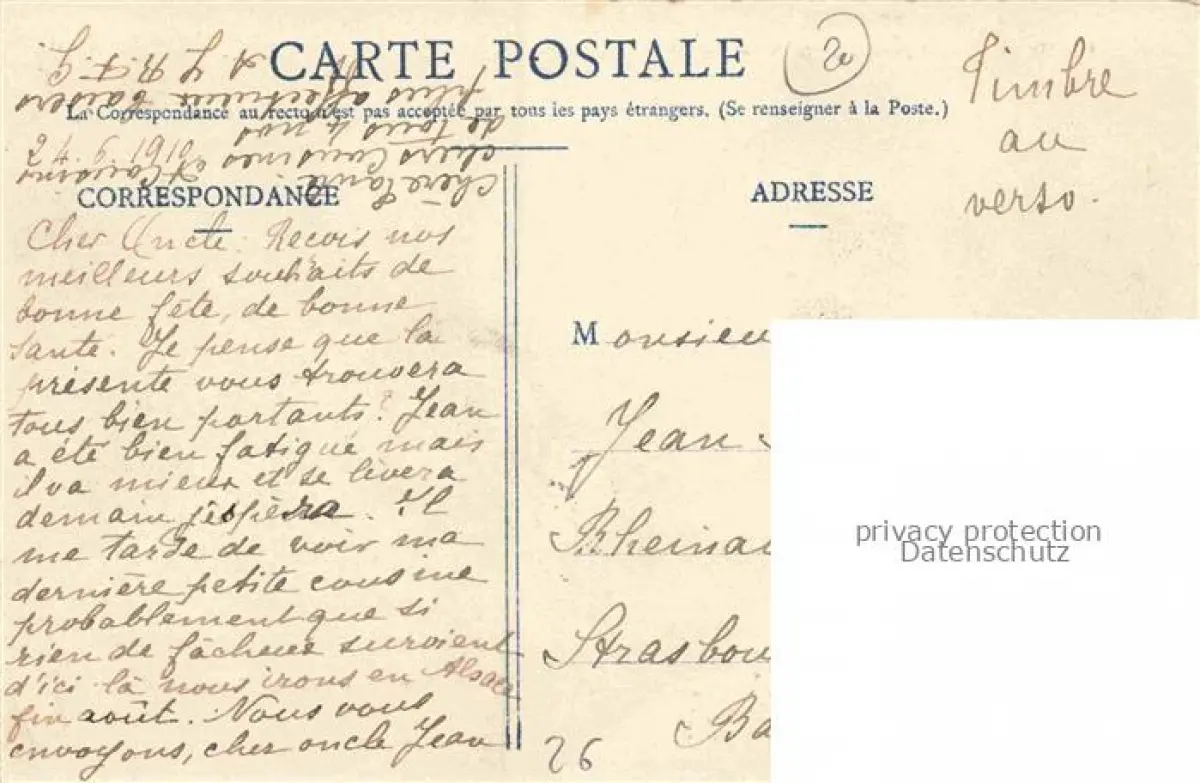 CARTE POSTALE
La Correspondance au recto n'est pas acceptée par tous les pays étrangers. (Se renseigner à la Poste.)
Timbre
au
verso.
CORRESPONDANCE
Cher Oncle. Reçois nos
meilleurs souhaits de
bonne fête, de bonne
santé. Je pense que la
présente vous trouvera
tous bien portants? Jean
a été bien fatigué mais
il va mieux et se lèvera
demain j'espère. Il
me tarde de voir ma
dernière petite cousine
probablement que si
rien de fâcheux survient
d'ici là nous irons en Alsace
fin août. Nous vous
envoyons, cher oncle Jean
chère tante
chers cousines
de tous 4 nos
plus affectueux baisers
ADRESSE
Monsieu
Jean
Rheinau
Strasbou
Ba
26
privacy protection
Datenschutz